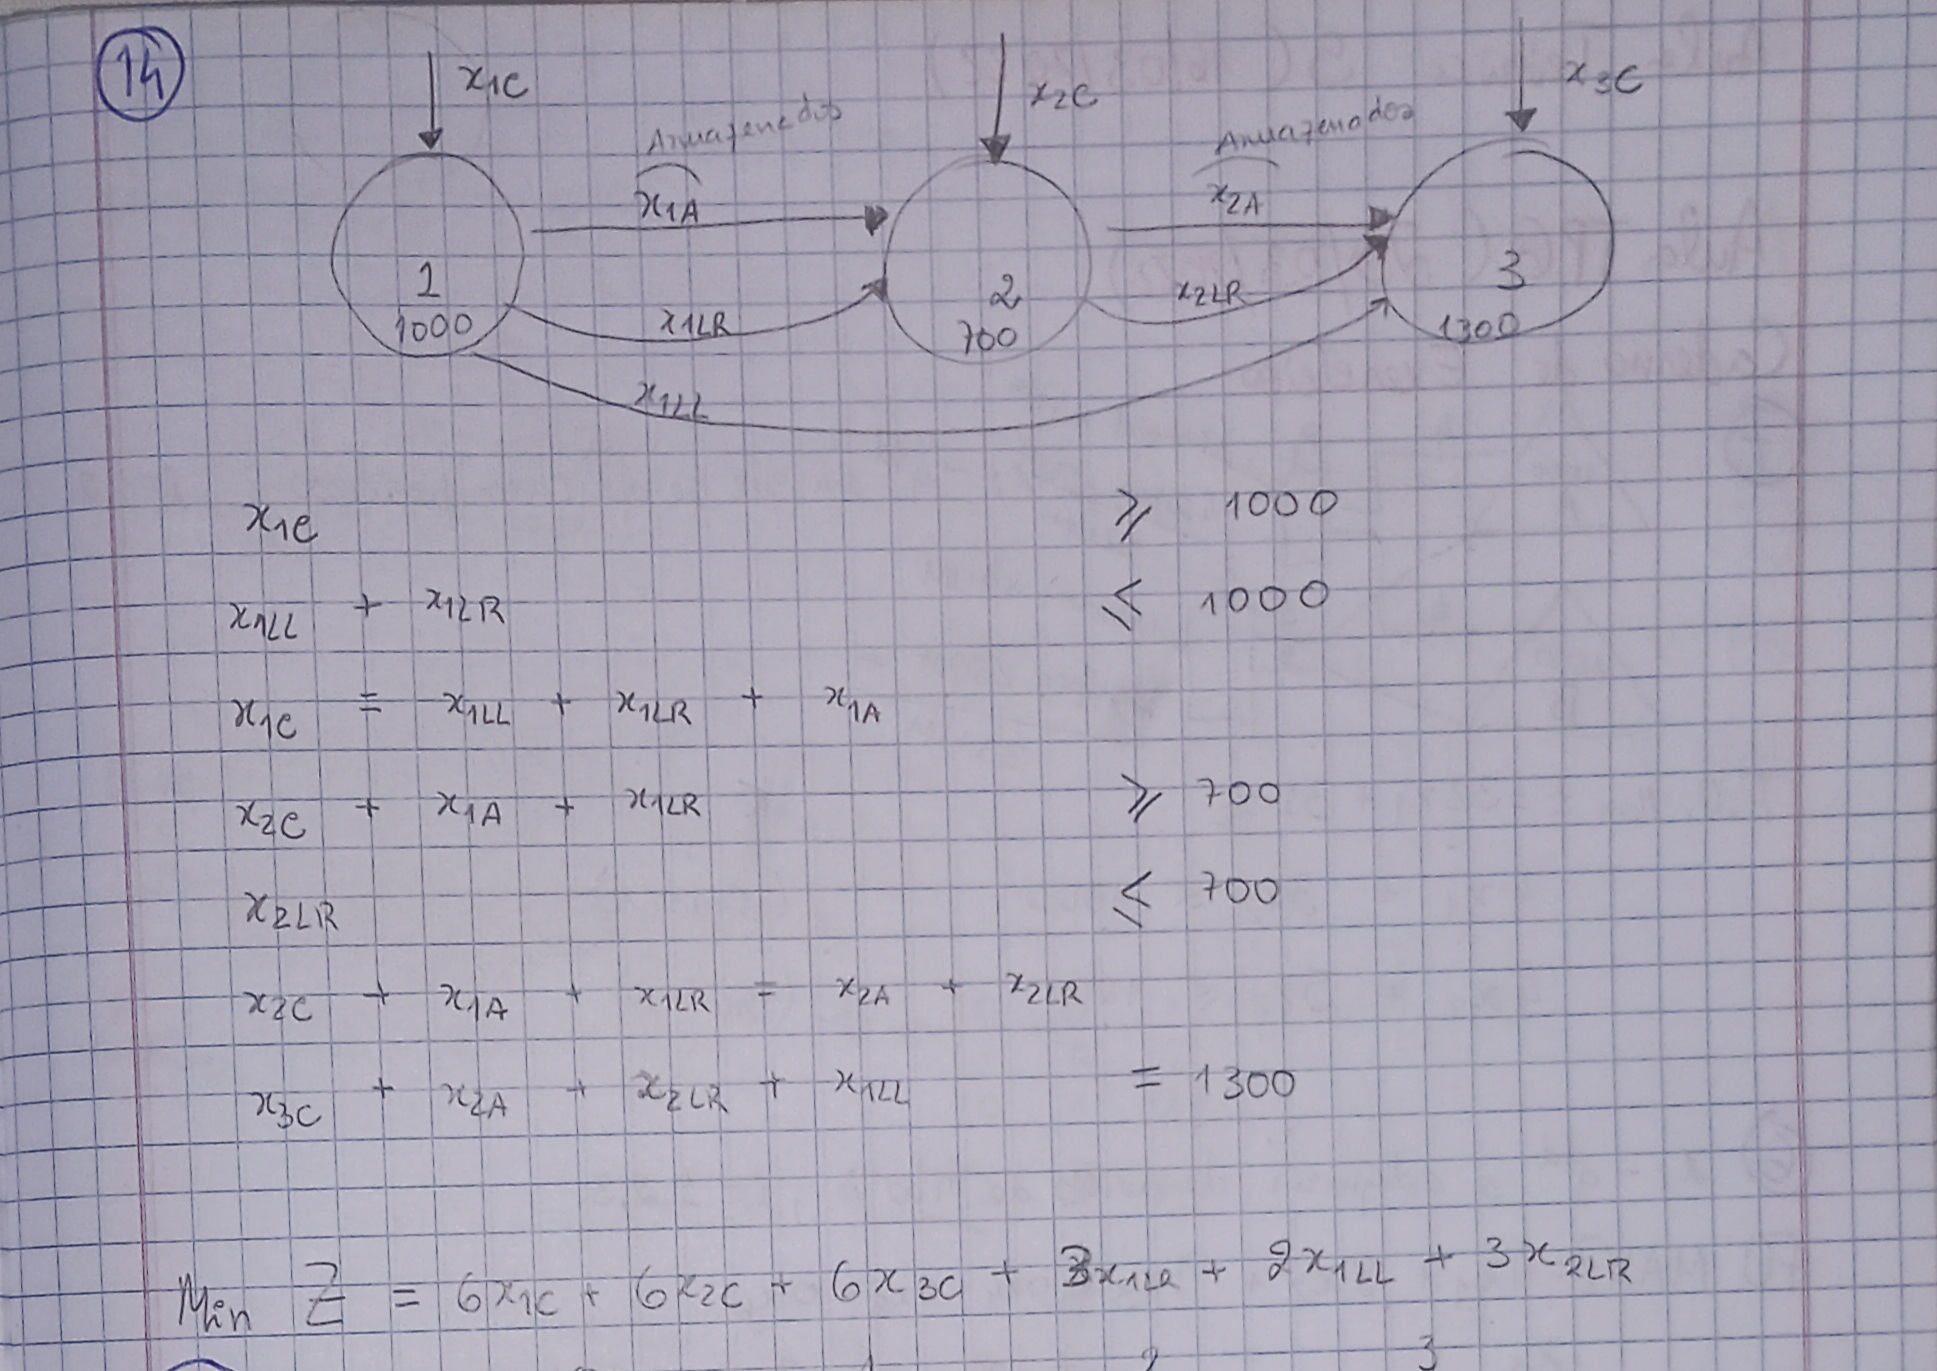 14
x1C x2C x3C
Armazenados Armazenados
x1A x2A
1 2 3
1000 700 1300
x1LR x2LR
x1LL
x1C ≥ 1000
x1LL + x1LR ≤ 1000
x1C = x1LL + x1LR + x1A
x2C + x1A + x1LR ≥ 700
x2LR ≤ 700
x2C + x1A + x1LR = x2A + x2LR
x3C + x2A + x2LR + x1LL = 1300
Min Z = 6x1C + 6x2C + 6x3C + 3x1LR + 2x1LL + 3x2LR